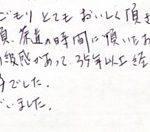 ごもり とても おいしく 頂き
頃、茶道の時間に 頂いたお
級感があって、35年以上経
でした。
いました。